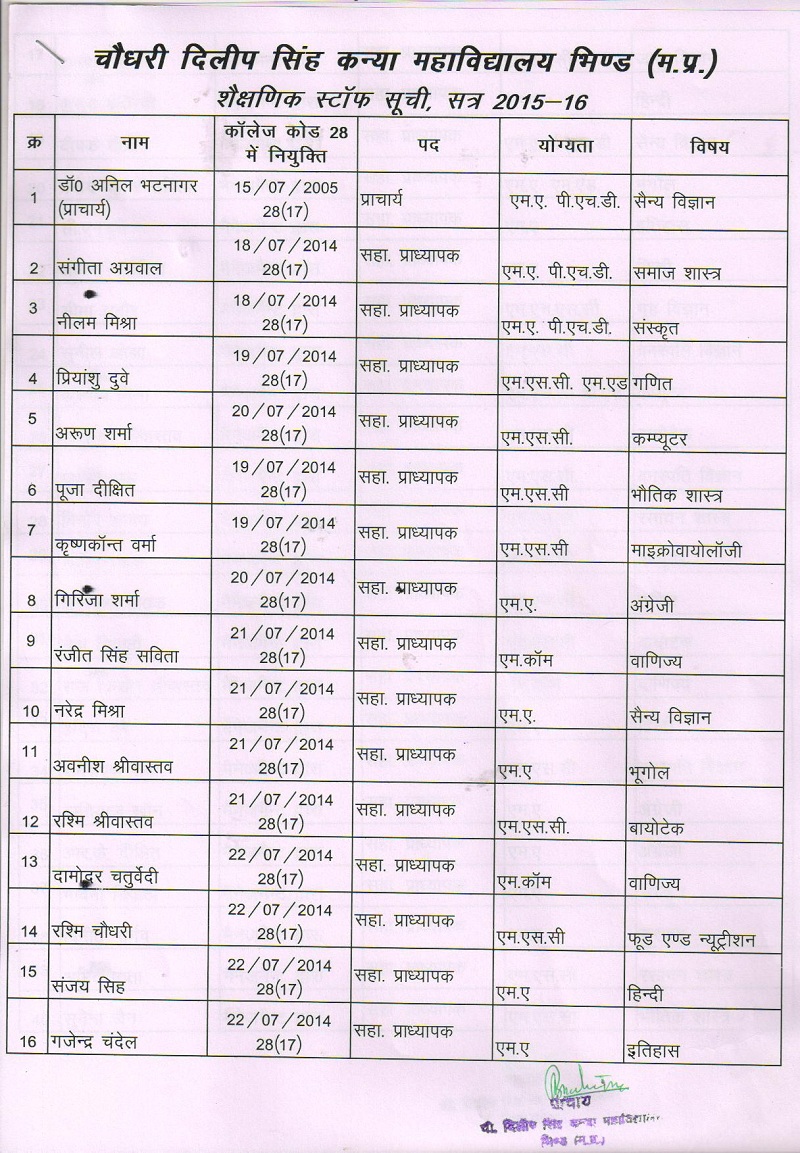 चौधरी दिलीप सिंह कन्या महाविद्यालय भिण्ड (म.प्र.)
शैक्षणिक स्टॉफ सूची, सत्र 2015–16
क्र नाम कॉलेज कोड 28 में नियुक्ति पद योग्यता विषय
1 डॉ0 अनिल भटनागर (प्राचार्य) 15/07/2005 28(17) प्राचार्य एम.ए. पी.एच.डी. सैन्य विज्ञान
2 संगीता अग्रवाल 18/07/2014 28(17) सहा. प्राध्यापक एम.ए. पी.एच.डी. समाज शास्त्र
3 नीलम मिश्रा 18/07/2014 28(17) सहा. प्राध्यापक एम.ए. पी.एच.डी. संस्कृत
4 प्रियांशु दुवे 19/07/2014 28(17) सहा. प्राध्यापक एम.एस.सी. एम.एड गणित
5 अरूण शर्मा 20/07/2014 28(17) सहा. प्राध्यापक एम.एस.सी. कम्प्यूटर
6 पूजा दीक्षित 19/07/2014 28(17) सहा. प्राध्यापक एम.एस.सी भौतिक शास्त्र
7 कृष्णकॉन्त वर्मा 19/07/2014 28(17) सहा. प्राध्यापक एम.एस.सी माइक्रोवायोलॉजी
8 गिरिजा शर्मा 20/07/2014 28(17) सहा. प्राध्यापक एम.ए. अंग्रेजी
9 रंजीत सिंह सविता 21/07/2014 28(17) सहा. प्राध्यापक एम.कॉम वाणिज्य
10 नरेद्र मिश्रा 21/07/2014 28(17) सहा. प्राध्यापक एम.ए. सैन्य विज्ञान
11 अवनीश श्रीवास्तव 21/07/2014 28(17) सहा. प्राध्यापक एम.ए भूगोल
12 रश्मि श्रीवास्तव 21/07/2014 28(17) सहा. प्राध्यापक एम.एस.सी. बायोटेक
13 दामोदर चतुर्वेदी 22/07/2014 28(17) सहा. प्राध्यापक एम.कॉम वाणिज्य
14 रश्मि चौधरी 22/07/2014 28(17) सहा. प्राध्यापक एम.एस.सी फूड एण्ड न्यूट्रीशन
15 संजय सिह 22/07/2014 28(17) सहा. प्राध्यापक एम.ए हिन्दी
16 गजेन्द्र चंदेल 22/07/2014 28(17) सहा. प्राध्यापक एम.ए इतिहास
प्राचार्य
चौ. दिलीप सिंह कन्या महाविद्यालय
भिण्ड (म.प्र.)